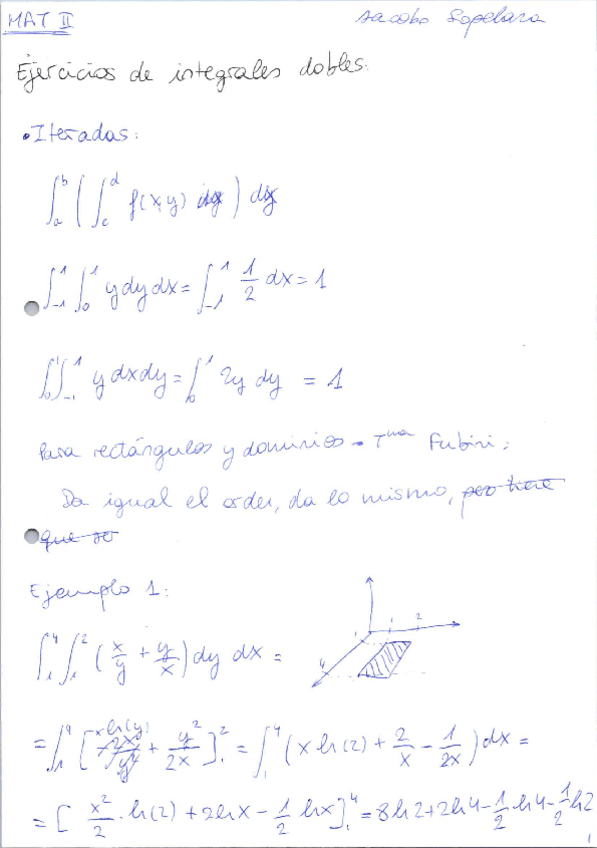 MAT II
Jacobo Sopelana
Ejercicios de integrales dobles:
• Iteradas:
∫_a^b ( ∫_c^d f(x,y) dy ) dx
∫_{-1}^1 ∫_0^1 y dy dx = ∫_{-1}^1 1/2 dx = 1
∫_0^1 ∫_{-1}^1 y dx dy = ∫_0^1 2y dy = 1
Para rectángulos y dominios → Tma Fubini:
Da igual el orden, da lo mismo, pero tiene
que ser
Ejemplo 1:
1 1 2
4
∫_1^4 ∫_1^2 ( x/y + y/x ) dy dx =
= ∫_1^4 [ x ln(y) + y²/2x ]_1^2 = ∫_1^4 ( x ln(2) + 2/x - 1/2x ) dx =
= [ x²/2 · ln(2) + 2 ln x - 1/2 ln x ]_1^4 = 8 ln 2 + 2 ln 4 - 1/2 ln 4 - 1/2 ln 2
1